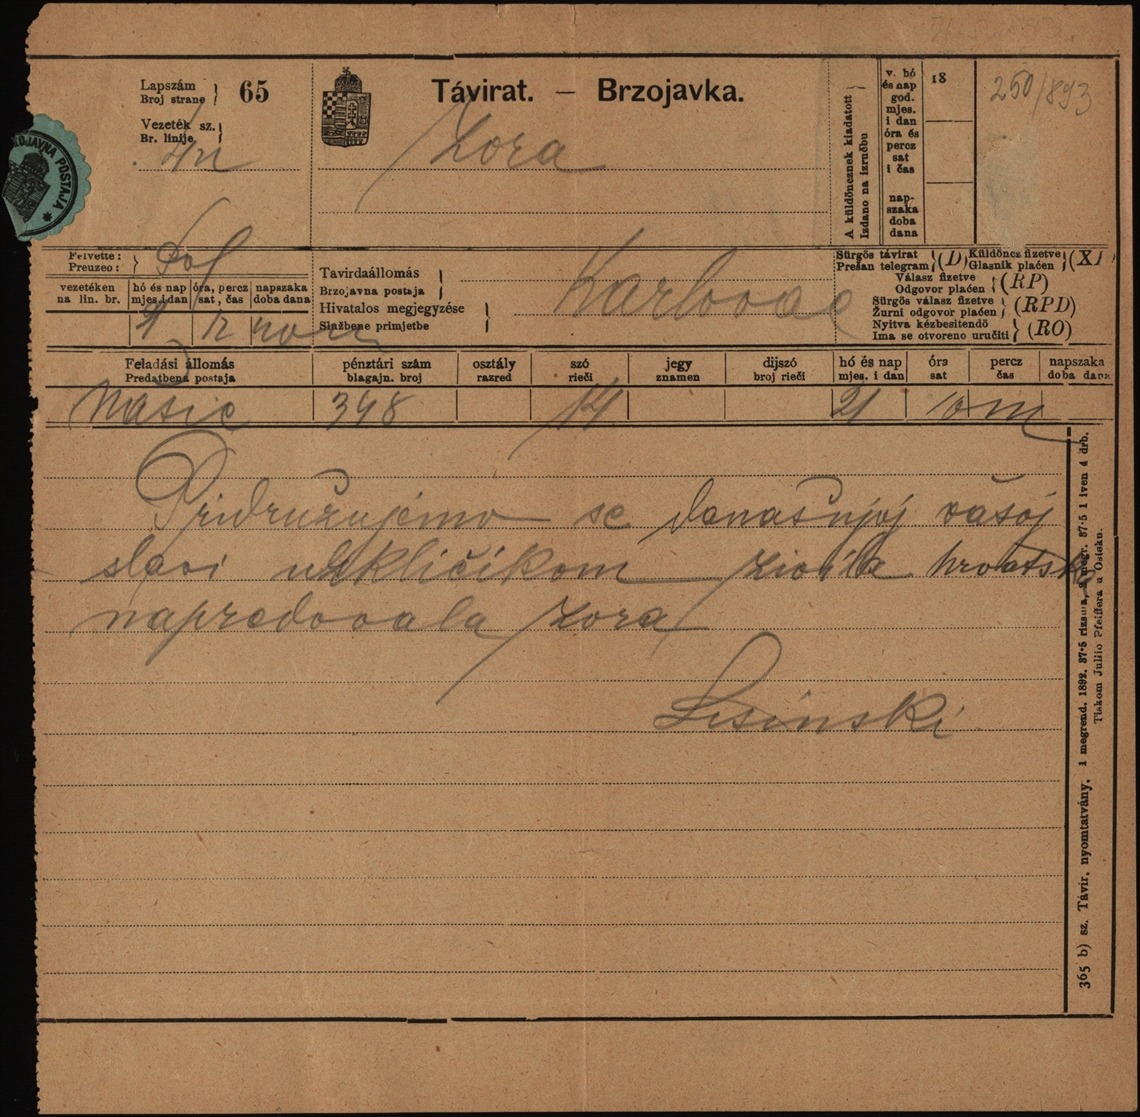 71
Lapszám
Broj strane } 65
Távirat. – Brzojavka.
Vezeték sz.
Br. linije
Zora
BRZOJAVNA POSTAJA
A küldöncznek kiadatott
Izdano na izručbu
v. hó
és nap
god.
mjes.
i dan
óra és
percz
sat
i čas
nap-
szaka
doba
dana
18
250/893
Felvette:
Preuzeo:
vezetéken
na lin. br.
hó és nap
mjes. i dan
óra, percz
sat, čas
napszaka
doba dana
21 12
Tavirdaállomás
Brzojavna postaja
Hivatalos megjegyzése
Službene primjetbe
Karlovac
Sürgős távirat
Prešan telegram (D)
Küldöncz fizetve
Glasnik plaćen (XP)
Válasz fizetve
Odgovor plaćen (RP)
Sürgős válasz fizetve
Žurni odgovor plaćen (RPD)
Nyitva kézbesitendő
Ima se otvoreno uručiti (RO)
Feladási állomás
Predatbena postaja
pénztári szám
blagajn. broj
osztály
razred
szó
rieči
jegy
znamen
dijszó
broj rieči
hó és nap
mjes. i dan
óra
sat
percz
čas
napszaka
doba dana
Našic 348 14 21 10 m
Pridružujemo se današnjoj vašoj
slavi uskličikom živila hrvatska
napredovala zora
Lisinski
365 b) sz. Távir. nyomtatvány. 1 megrend. 1892. 37·5 rizsma, 2 megr. 37·5 i iven 4 drb.
Tiskom Julijo Pfeiffera u Osieku.